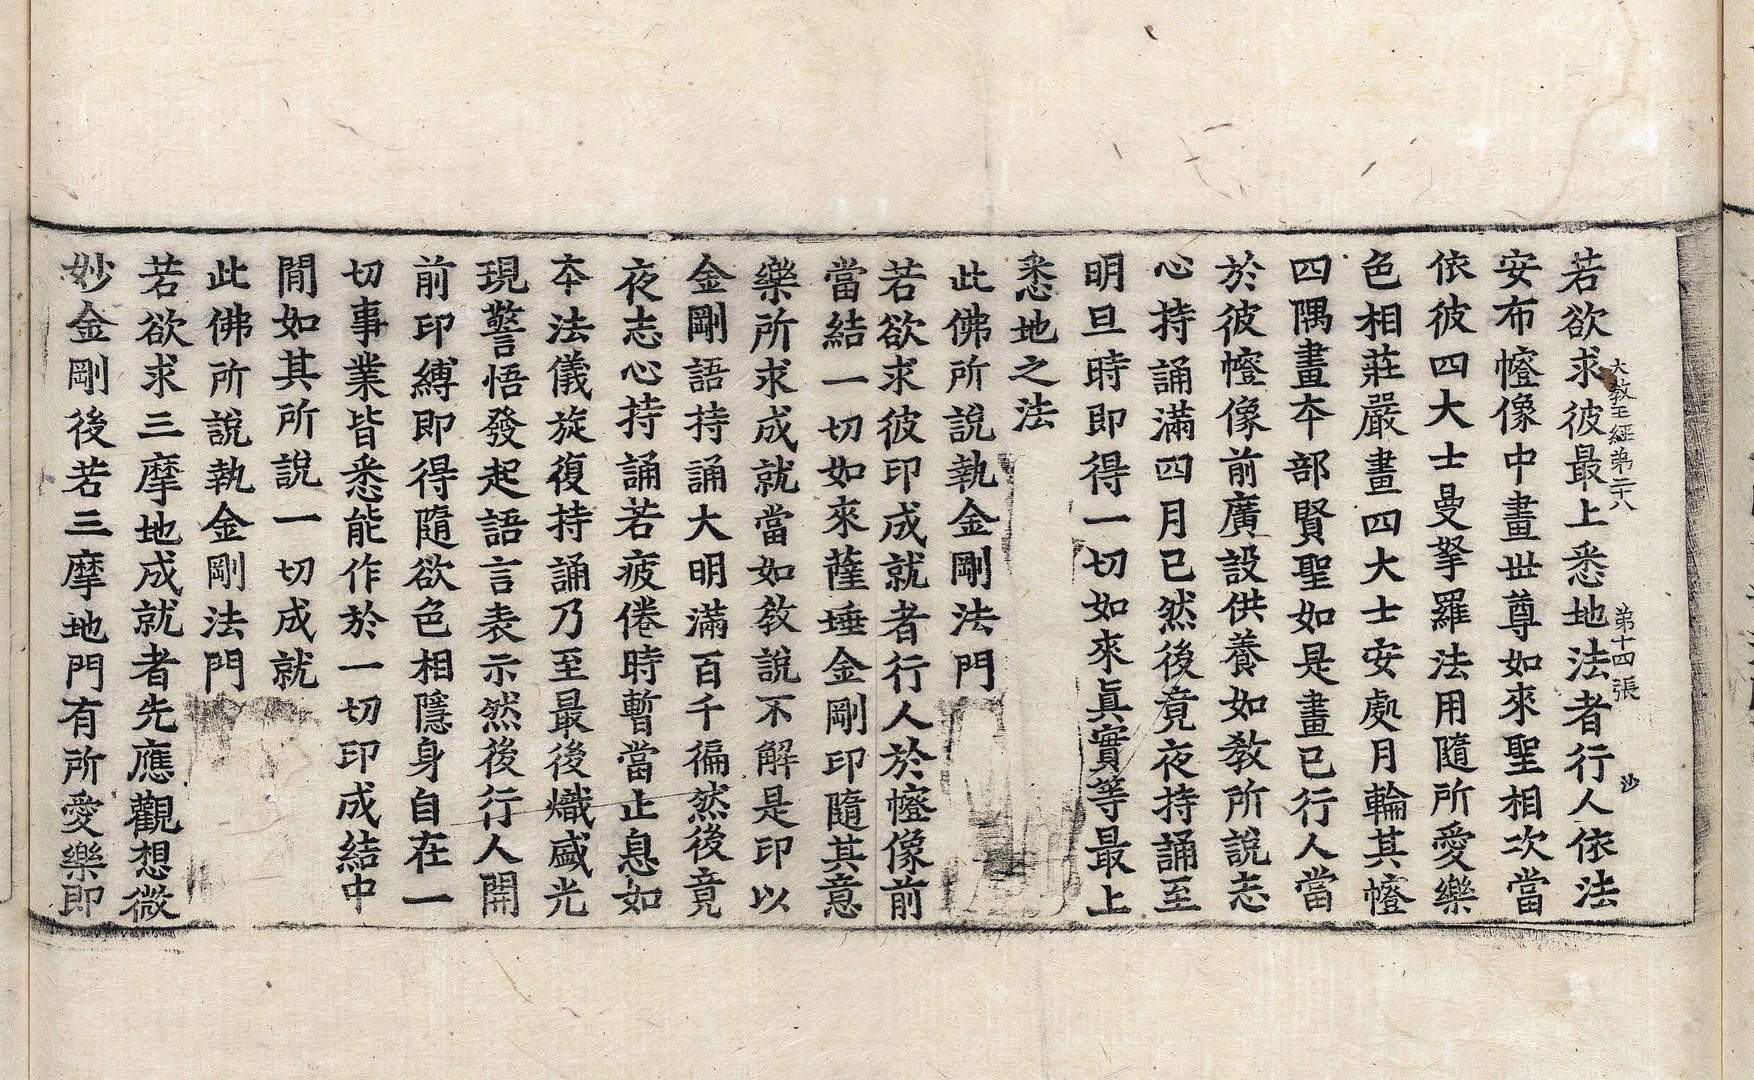 大教王經第二十八　第十四張　沙
若欲求彼最上悉地法者行人依法
安布㡧像中畫世尊如來聖相次當
依彼四大士曼拏羅法用隨所愛樂
色相莊嚴畫四大士安處月輪其㡧
四隅畫夲部賢聖如是畫已行人當
於彼㡧像前廣設供養如教所說志
心持誦滿四月已然後竟夜持誦至
明旦時即得一切如來眞實等最上
悉地之法
此佛所說執金剛法門
若欲求彼印成就者行人於㡧像前
當結一切如來薩埵金剛印隨其意
樂所求成就當如教說不解是印以
金剛語持誦大明滿百千徧然後竟
夜志心持誦若疲倦時暫當止息如
夲法儀旋復持誦乃至最後熾盛光
現警悟發起語言表示然後行人開
前印縛即得隨欲色相隱身自在一
切事業皆悉能作於一切印成結中
間如其所說一切成就
此佛所說執金剛法門
若欲求三摩地成就者先應觀想微
妙金剛後若三摩地門有所愛樂即